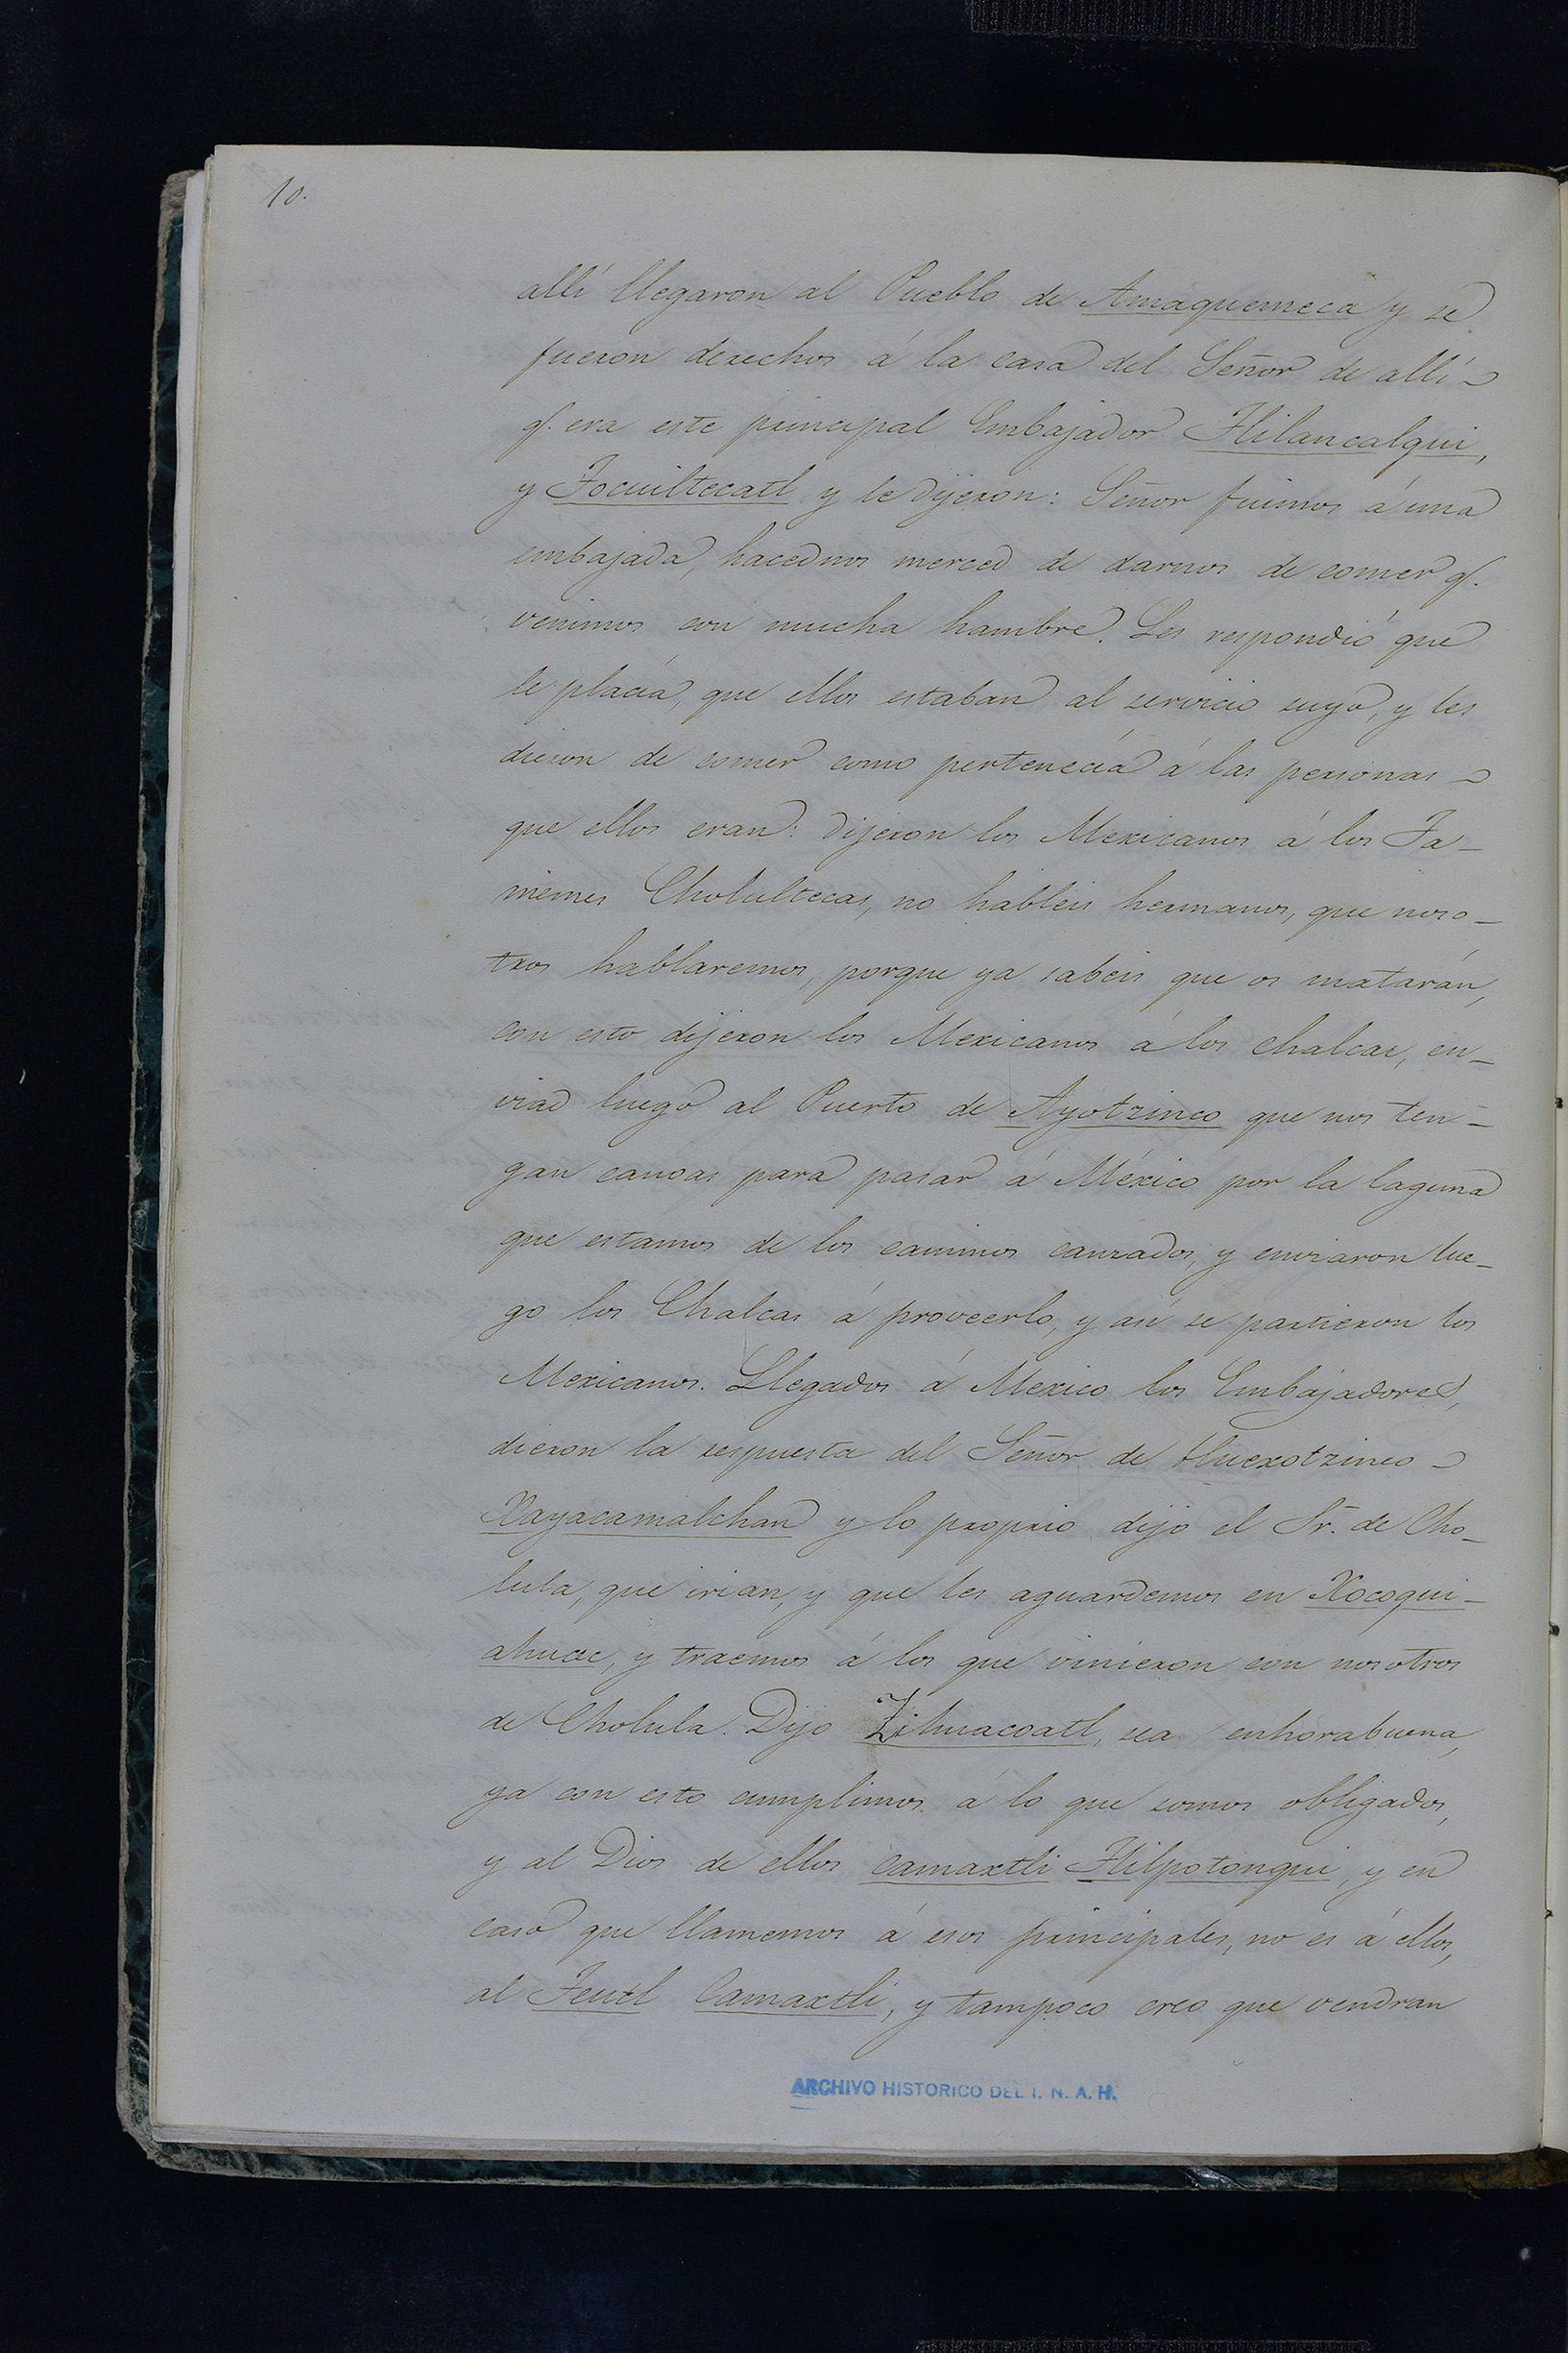 10.
allí llegaron al Pueblo de Amaquemeca y se
fueron derechos á la casa del Señor de allí
q.e era este principal Embajador Tlilancalqui,
y Tocuiltecatl y le dijeron: Señor fuimos á una
embajada, hacednos merced de darnos de comer q.e
venimos con mucha hambre. Les respondió que
le placía, que ellos estaban al servicio suyo, y les
dieron de comer como pertenecía á las personas
que ellos eran: dijeron los Mexicanos á los Ta-
memes Cholultecas, no habléis hermanos, que noso-
tros hablaremos, porque ya sabeis que os matarán,
con esto dijeron los Mexicanos á los chalcas, en-
viad luego al Puerto de Ayotzinco que nos ten-
gan canoas para pasar á México por la laguna
que estamos de los caminos canzados, y enviaron lue-
go los Chalcas á proveerlo, y así se partieron los
Mexicanos. Llegados á Mexico los Embajadores,
dieron la respuesta del Señor de Huexotzinco
Xayacamalchan y lo proprio dijo el Sr. de Cho-
lula, que irian, y que les aguardemos en Xocoqui-
ahuac, y traemos á los que vinieron con nosotros
de Cholula. Dijo Zihuacoatl, sea enhorabuena,
ya con esto cumplimos á lo que somos obligados,
y al Dios de ellos Camaxtli Tlilpotonqui, y en
caso que llamemos á esos principales, no es á ellos,
al Teutl Camaxtli, y tampoco creo que vendran
ARCHIVO HISTORICO DEL I. N. A. H.